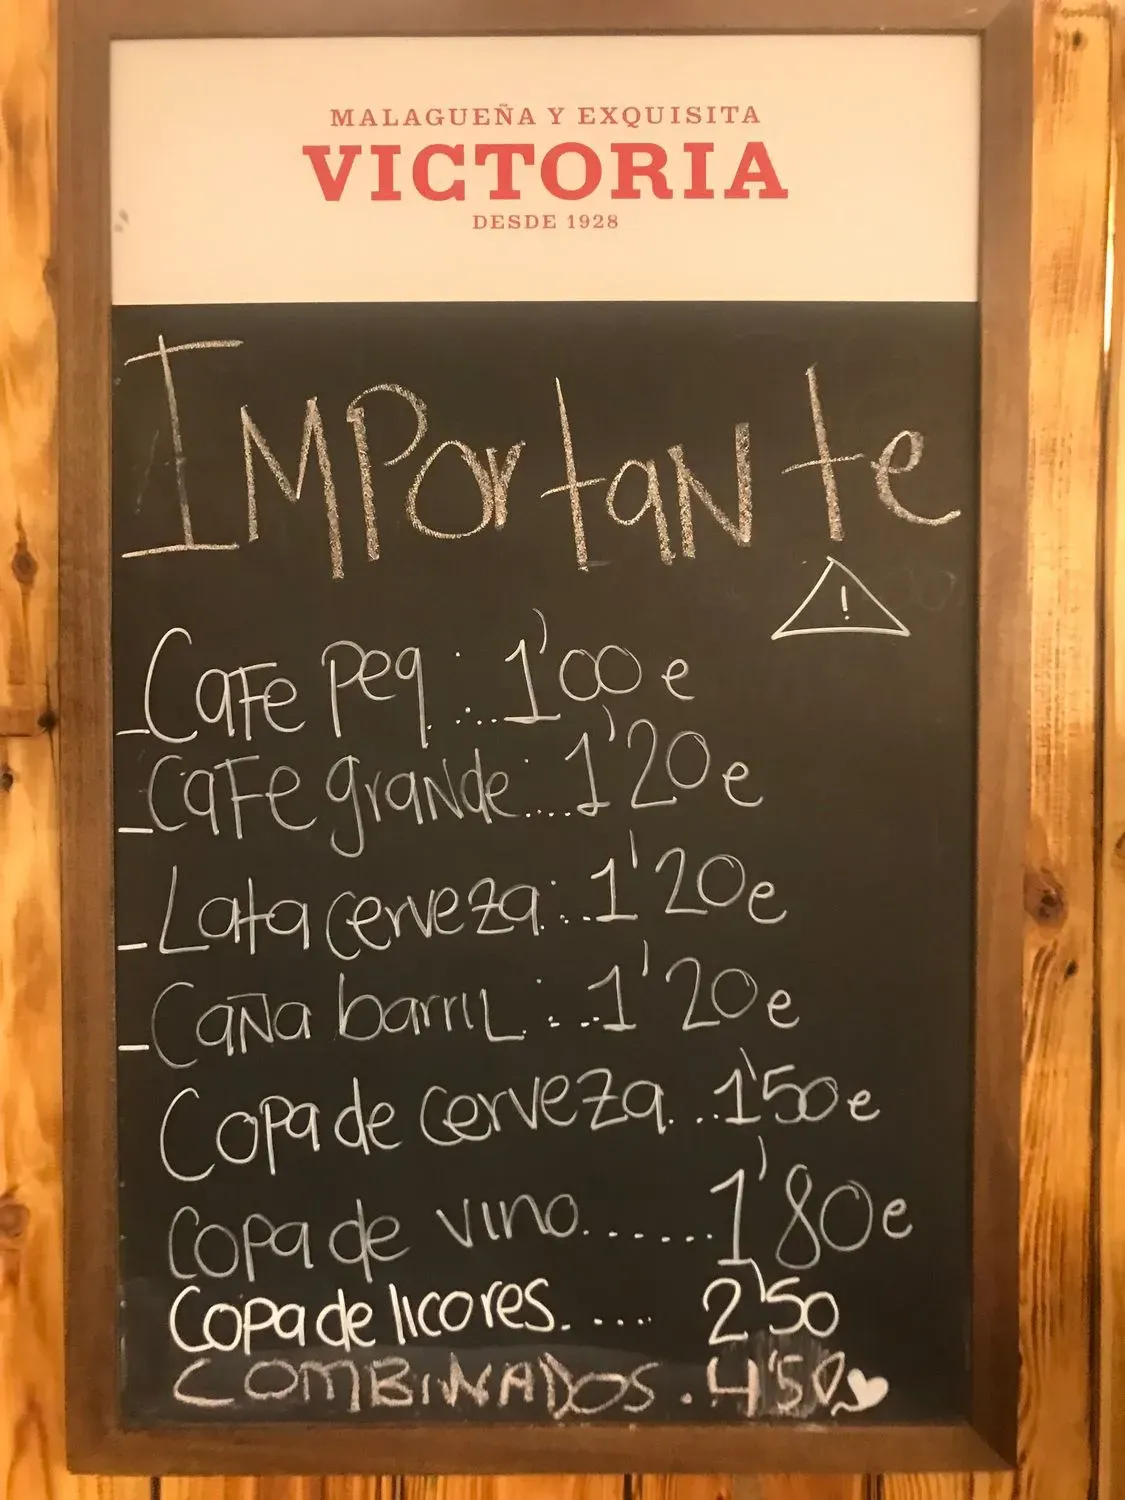 MALAGUEÑA Y EXQUISITA
VICTORIA
DESDE 1928
IMPortaNte
!
-CaFe peq. : ....1'00 e
-CaFe graNde:....1'20 e
-Lata cerveza:...1'20 e
-Caña barriL:...1'20 e
Copa de cerveza...1'50 e
Copa de vino.......1'80 e
Copa de licores..... 2'50
COMBiNADOS.4'50